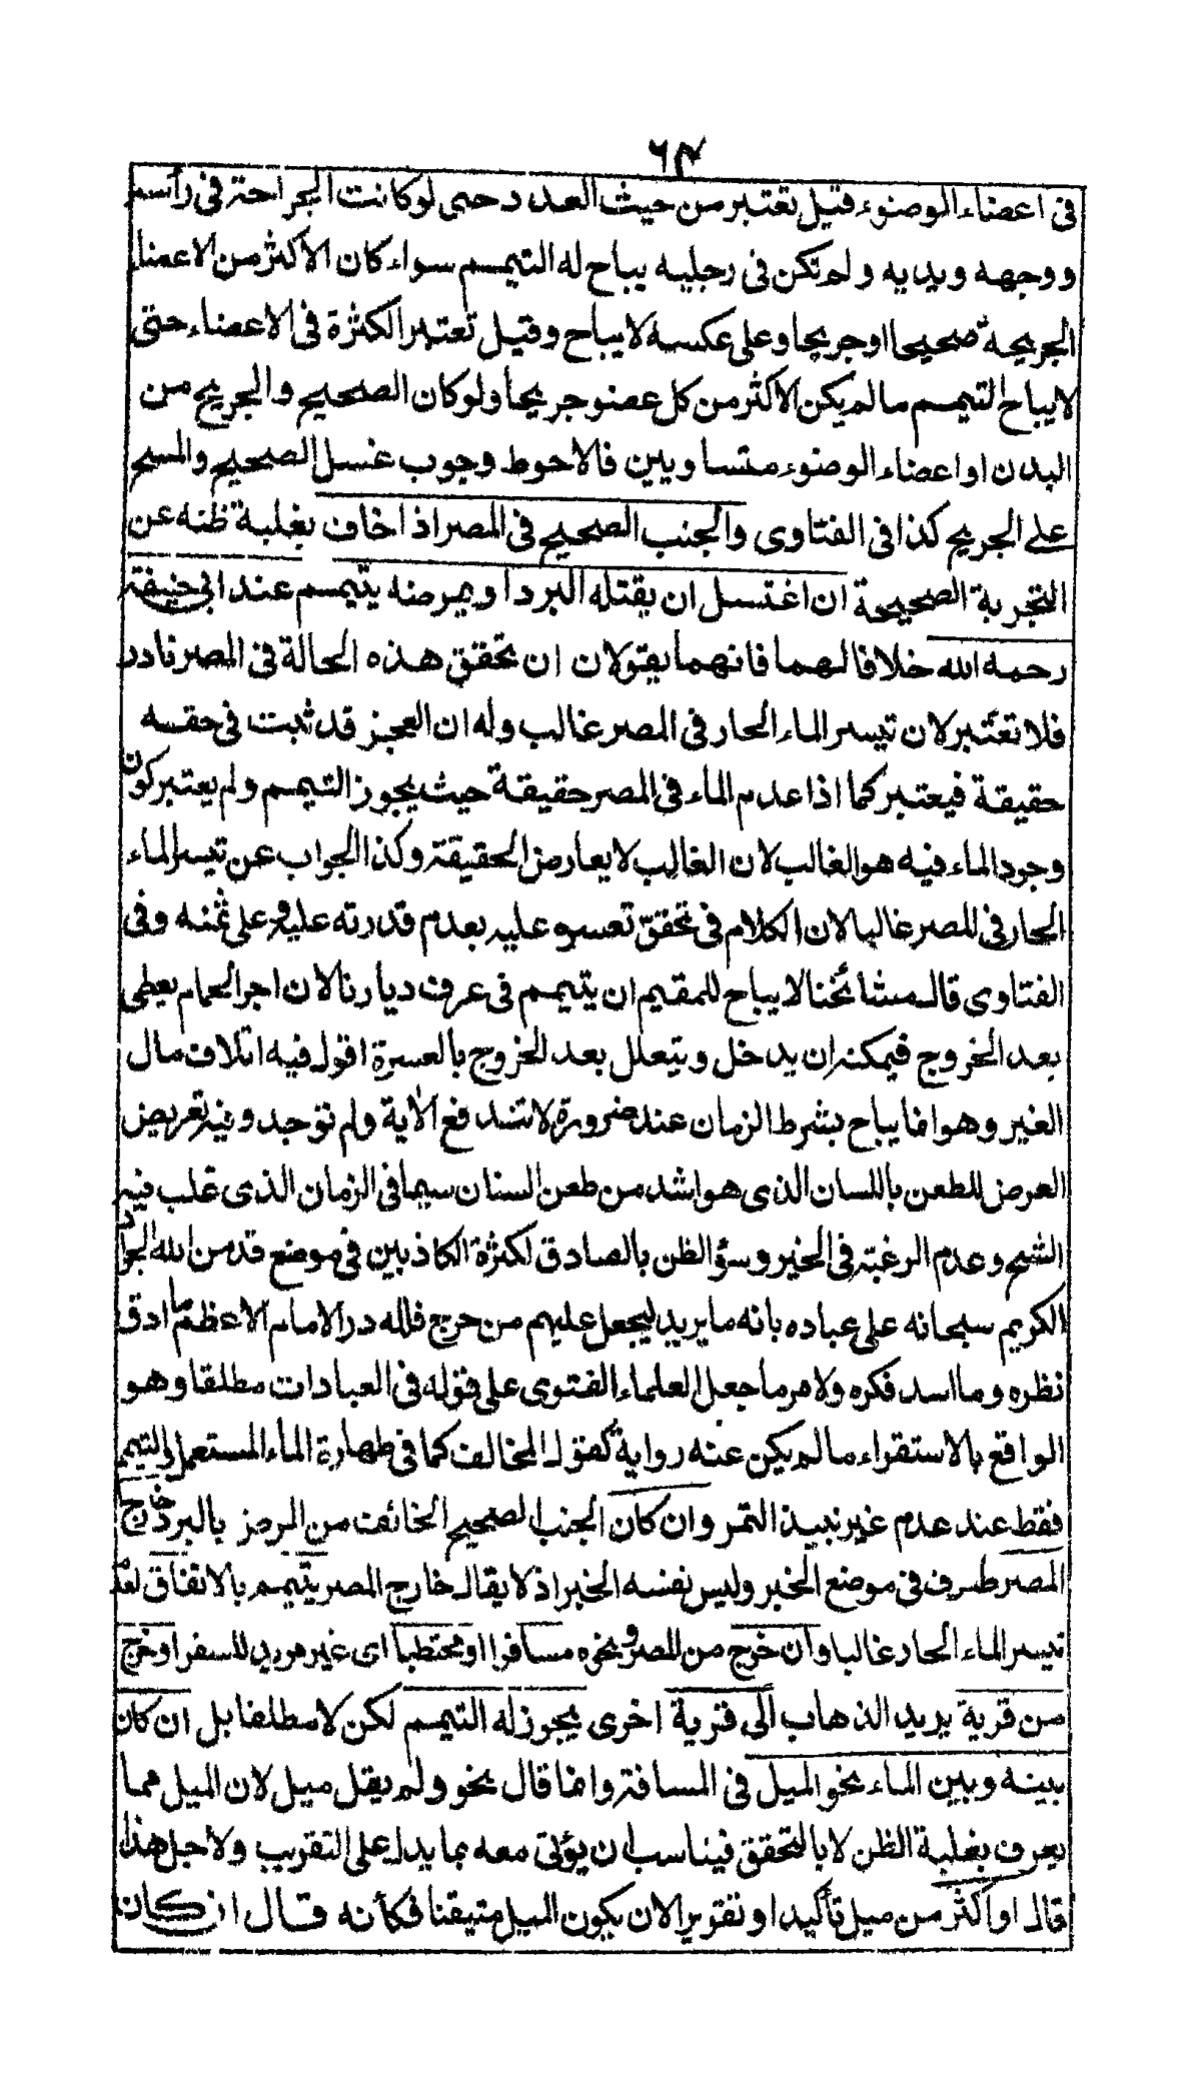 ٦٤
فى اعضاء الوضوء فقيل تعتبر من حيث العدد حتى لو كانت الجراحة فى رأسه
ووجهه ويديه ولم تكن فى رجليه يباح له التيمم سواء كان الاكثر من الاعضاء
الجريحة صحيحا او جريحا وعلى عكسه لا يباح وقيل تعتبر الكثرة فى الاعضاء حتى
لا يباح التيمم ما لم يكن الاكثر من كل عضو جريحا ولو كان الصحيح والجريح من
البدن او اعضاء الوضوء متساويين فالاحوط وجوب غسل الصحيح والمسح
على الجريح كذا فى الفتاوى والجنب الصحيح فى المصر اذا خاف بغلبة ظنه عن
التجربة الصحيحة ان اغتسل ان يقتله البرد او يمرضه يتيمم عند ابى حنيفة
رحمه الله خلافا لهما فانهما يقولان ان تحقق هذه الحالة فى المصر نادر
فلا تعتبر لان تيسر الماء الحار فى المصر غالب وله ان العجز قد ثبت فى حقه
حقيقة فيعتبر كما اذا عدم الماء فى المصر حقيقة حيث يجوز التيمم ولم يعتبر كون
وجود الماء فيه هو الغالب لان الغالب لا يعارض الحقيقة وكذا الجواب عن تيسر الماء
الحار فى المصر غالبا لان الكلام فى تحقق تعسره عليه بعدم قدرته عليه وعلى ثمنه وفى
الفتاوى قال مشائخنا لا يباح للمقيم ان يتيمم فى عرف ديارنا لان اجر الحمام يعطى
بعد الخروج فيمكنه ان يدخل ويتعلل بعد الخروج بالعسرة اقول فيه اتلاف مال
الغير وهو انما يباح بشرط الزمان عند ضرورة لا تندفع الا به ولم توجد وفيه تعريض
العرض للطعن باللسان الذى هو اشد من طعن السنان سيما فى الزمان الذى غلب فيه
الشح وعدم الرغبة فى الخير وسؤ الظن بالصادق لكثرة الكاذبين فى موضع قد من الله الجواد
الكريم سبحانه على عباده بانه ما يريد ليجعل عليهم من حرج فلله در الامام الاعظم ما ادق
نظره وما اسد فكره ولامر ما جعل العلماء الفتوى على قوله فى العبادات مطلقا وهو
الواقع بالاستقراء ما لم يكن عنه رواية كقول المخالف كما فى طهارة الماء المستعمل والتيمم
فقط عند عدم غير نبيذ التمر وان كان الجنب الصحيح الخائف من المرض بالبرد خارج
المصر ظرف فى موضع الخبر وليس نفسه الخبر اذ لا يقال خارج المصر يتيمم بالاتفاق لعدم
تيسر الماء الحار غالبا وان خرج من المصر ونحوه مسافرا او محتطبا اى غير مريد للسفر او خرج
من قرية يريد الذهاب الى قرية اخرى يجوز له التيمم لكن لا مطلقا بل ان كان
بينه وبين الماء نحو الميل فى المسافة وانما قال نحو ولم يقل ميل لان الميل مما
يعرف بغلبة الظن لا بالتحقق فيناسب ان يؤتى معه بما يدل على التقريب ولاجل هذا
قال او اكثر من ميل تأكيدا وتقريرا لان يكون الميل متيقنا فكأنه قال ان كان